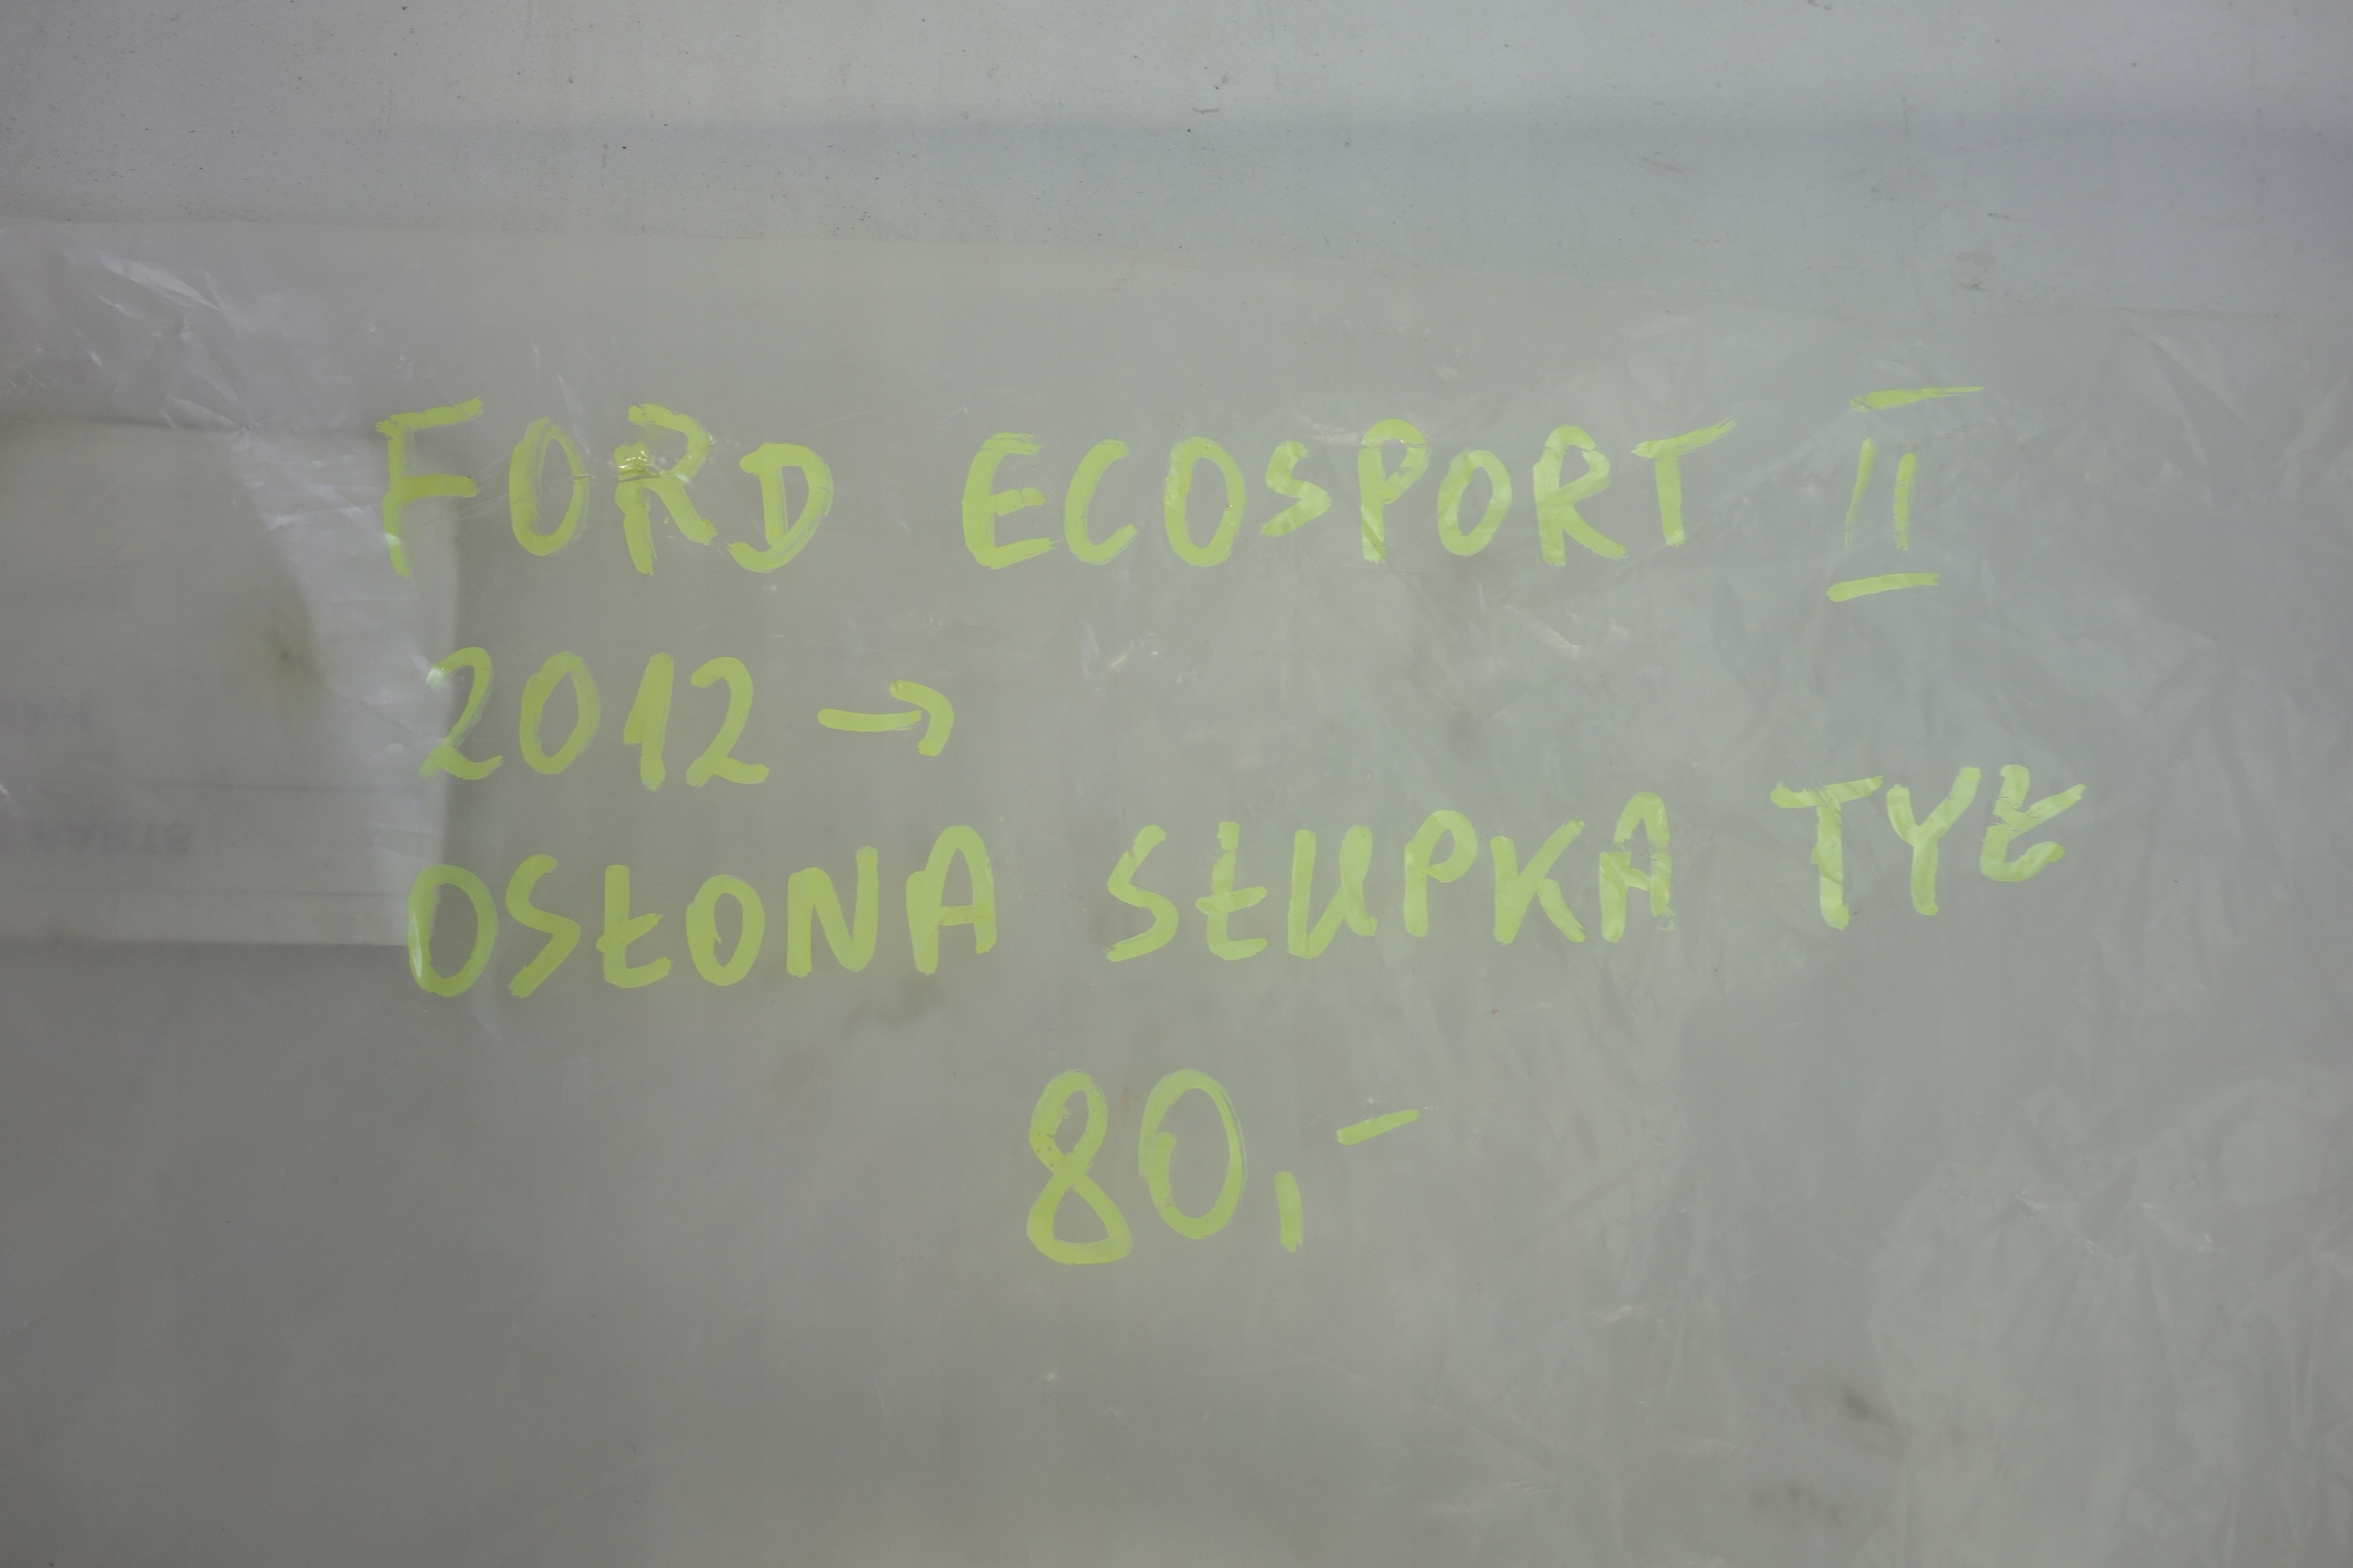 FORD ECOSPORT II
2012 →
OSŁONA SŁUPKA TYŁ
80,-
PARTS